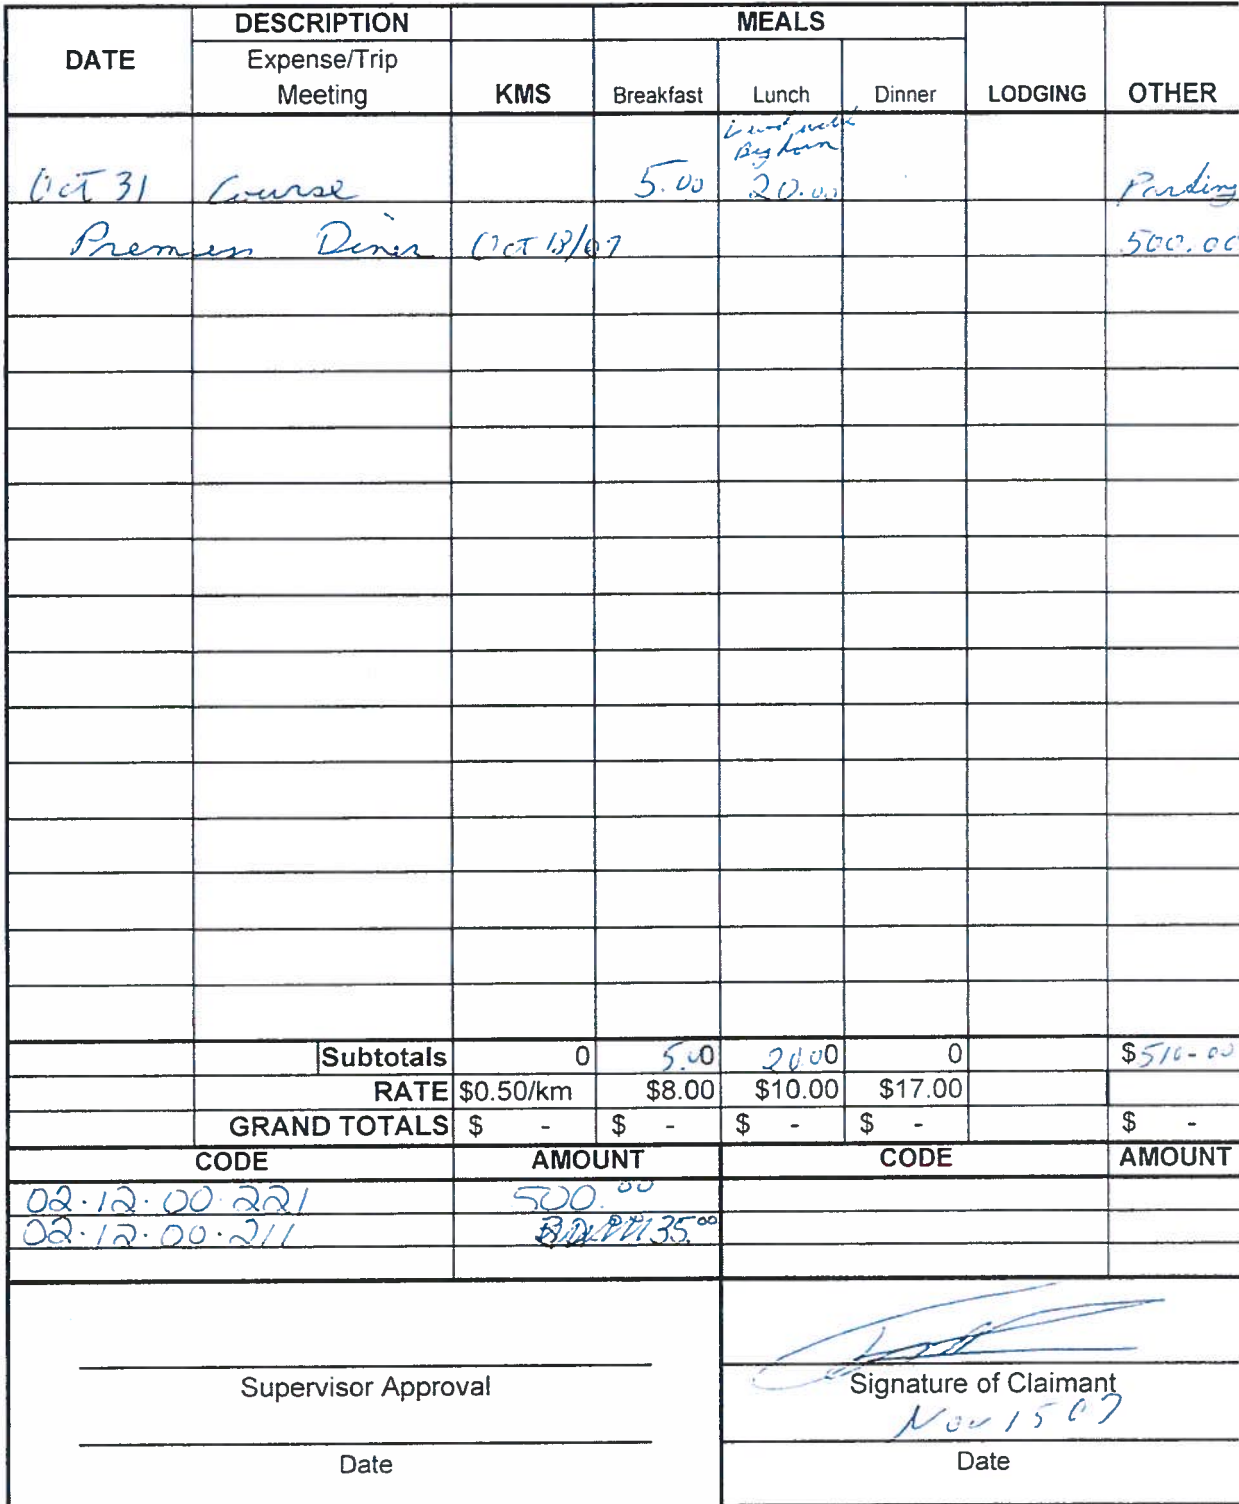 DESCRIPTION MEALS
DATE Expense/Trip
Meeting KMS Breakfast Lunch Dinner LODGING OTHER
Big horn
Oct 31 Course 5.00 20.00 Parking
Premiers Diner Oct 18/07 500.00
Subtotals 0 5.00 20.00 0 $510-00
RATE $0.50/km $8.00 $10.00 $17.00
GRAND TOTALS $ - $ - $ - $ - $ -
CODE AMOUNT CODE AMOUNT
02.12.00.221 500.00
02.12.00.211 35.00
Supervisor Approval Signature of Claimant
Nov 15 07
Date Date